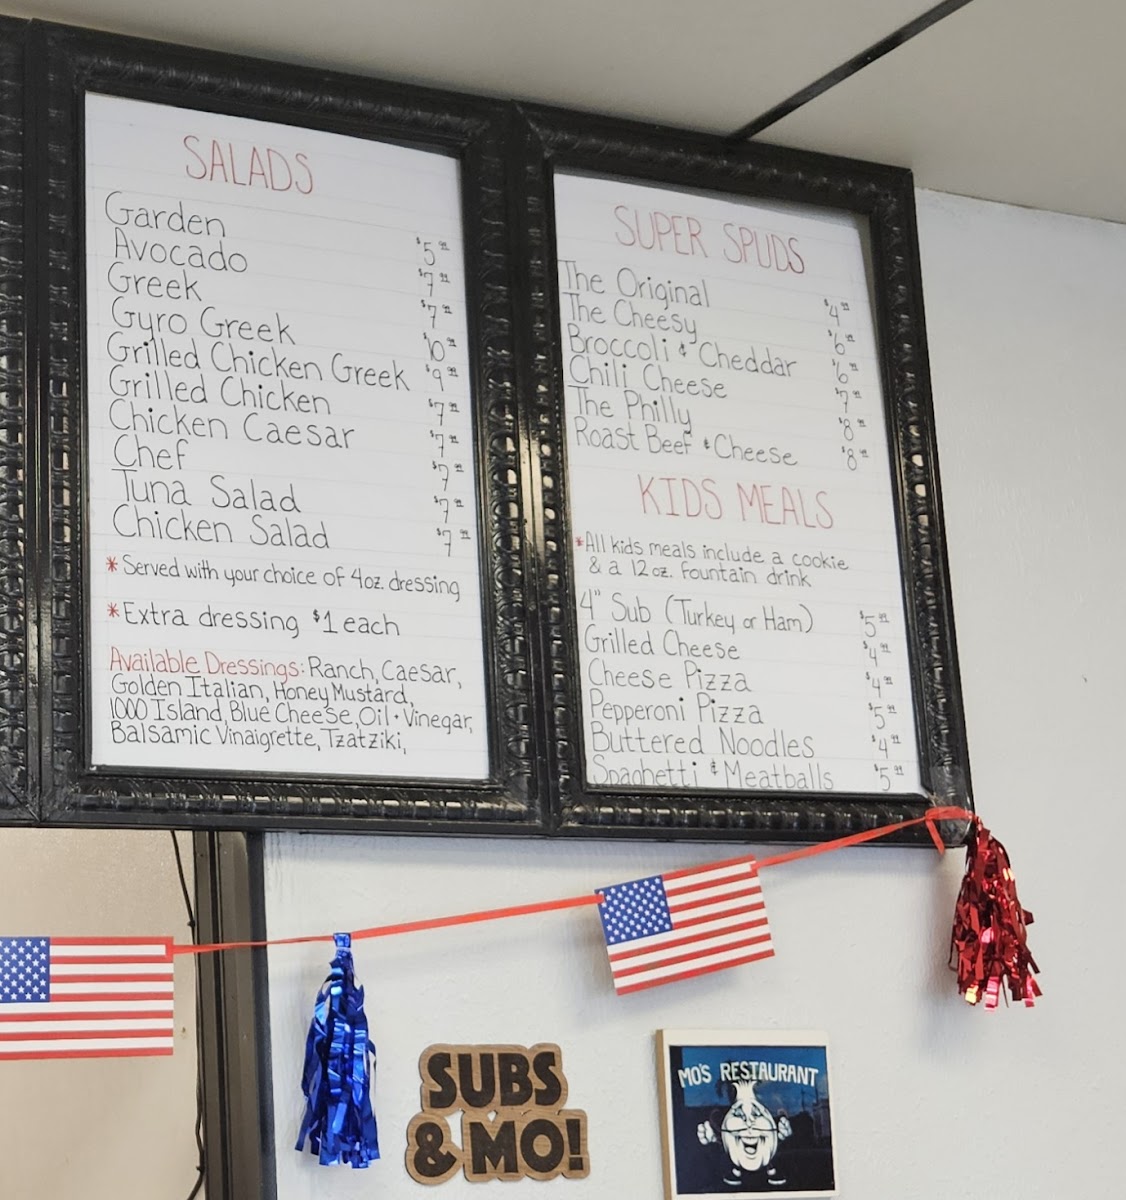 SALADS
Garden $5 99
Avocado $7 99
Greek $7 99
Gyro Greek $10 99
Grilled Chicken Greek $9 99
Grilled Chicken $7 99
Chicken Caesar $7 99
Chef $7 99
Tuna Salad $7 99
Chicken Salad $7 99
*Served with your choice of 4oz. dressing
*Extra dressing $1 each
Available Dressings: Ranch, Caesar,
Golden Italian, Honey Mustard,
1000 Island, Blue Cheese, Oil + Vinegar,
Balsamic Vinaigrette, Tzatziki,
SUPER SPUDS
The Original $4 99
The Cheesy $6 99
Broccoli & Cheddar $6 99
Chili Cheese $7 99
The Philly $8 99
Roast Beef & Cheese $8 99
KIDS MEALS
*All kids meals include a cookie
& a 12 oz. fountain drink
4" Sub (Turkey or Ham) $5 99
Grilled Cheese $4 99
Cheese Pizza $4 99
Pepperoni Pizza $5 99
Buttered Noodles $4 99
Spaghetti & Meatballs $5 99
SUBS
& MO!
MO'S RESTAURANT